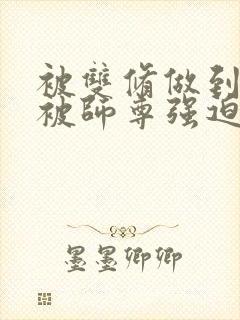 被雙脩做到
被師尊强迫
墨墨卿卿